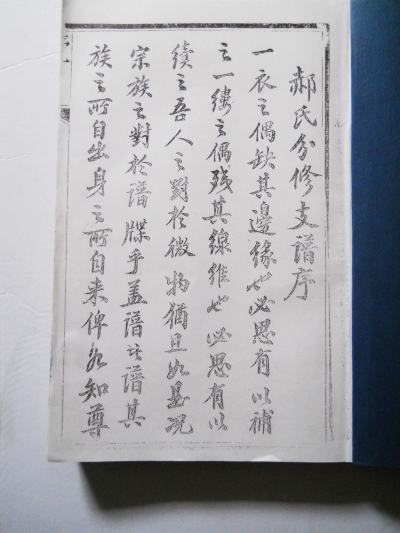 郝氏分修支譜序
一衣之偶缺其邊緣也必思有以補
之一縷之偶殘其線維也必思有以
續之吾人之對於微物猶且如是況
宗族之對於譜牒乎蓋譜者譜其
族之所自出身之所自来俾各知尊